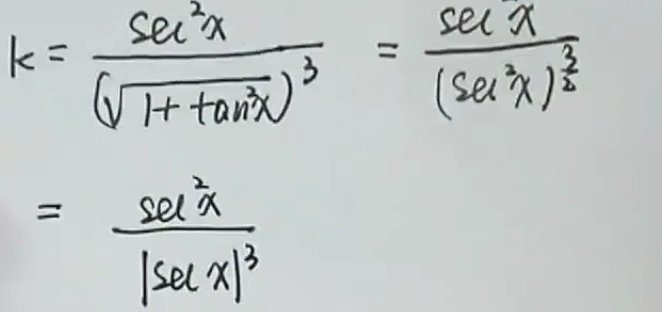 k = \frac{sec^2 x}{(\sqrt{1 + tan^2 x})^3} = \frac{sec^2 x}{(sec^2 x)^{\frac{3}{2}}}
= \frac{sec^2 x}{|sec x|^3}